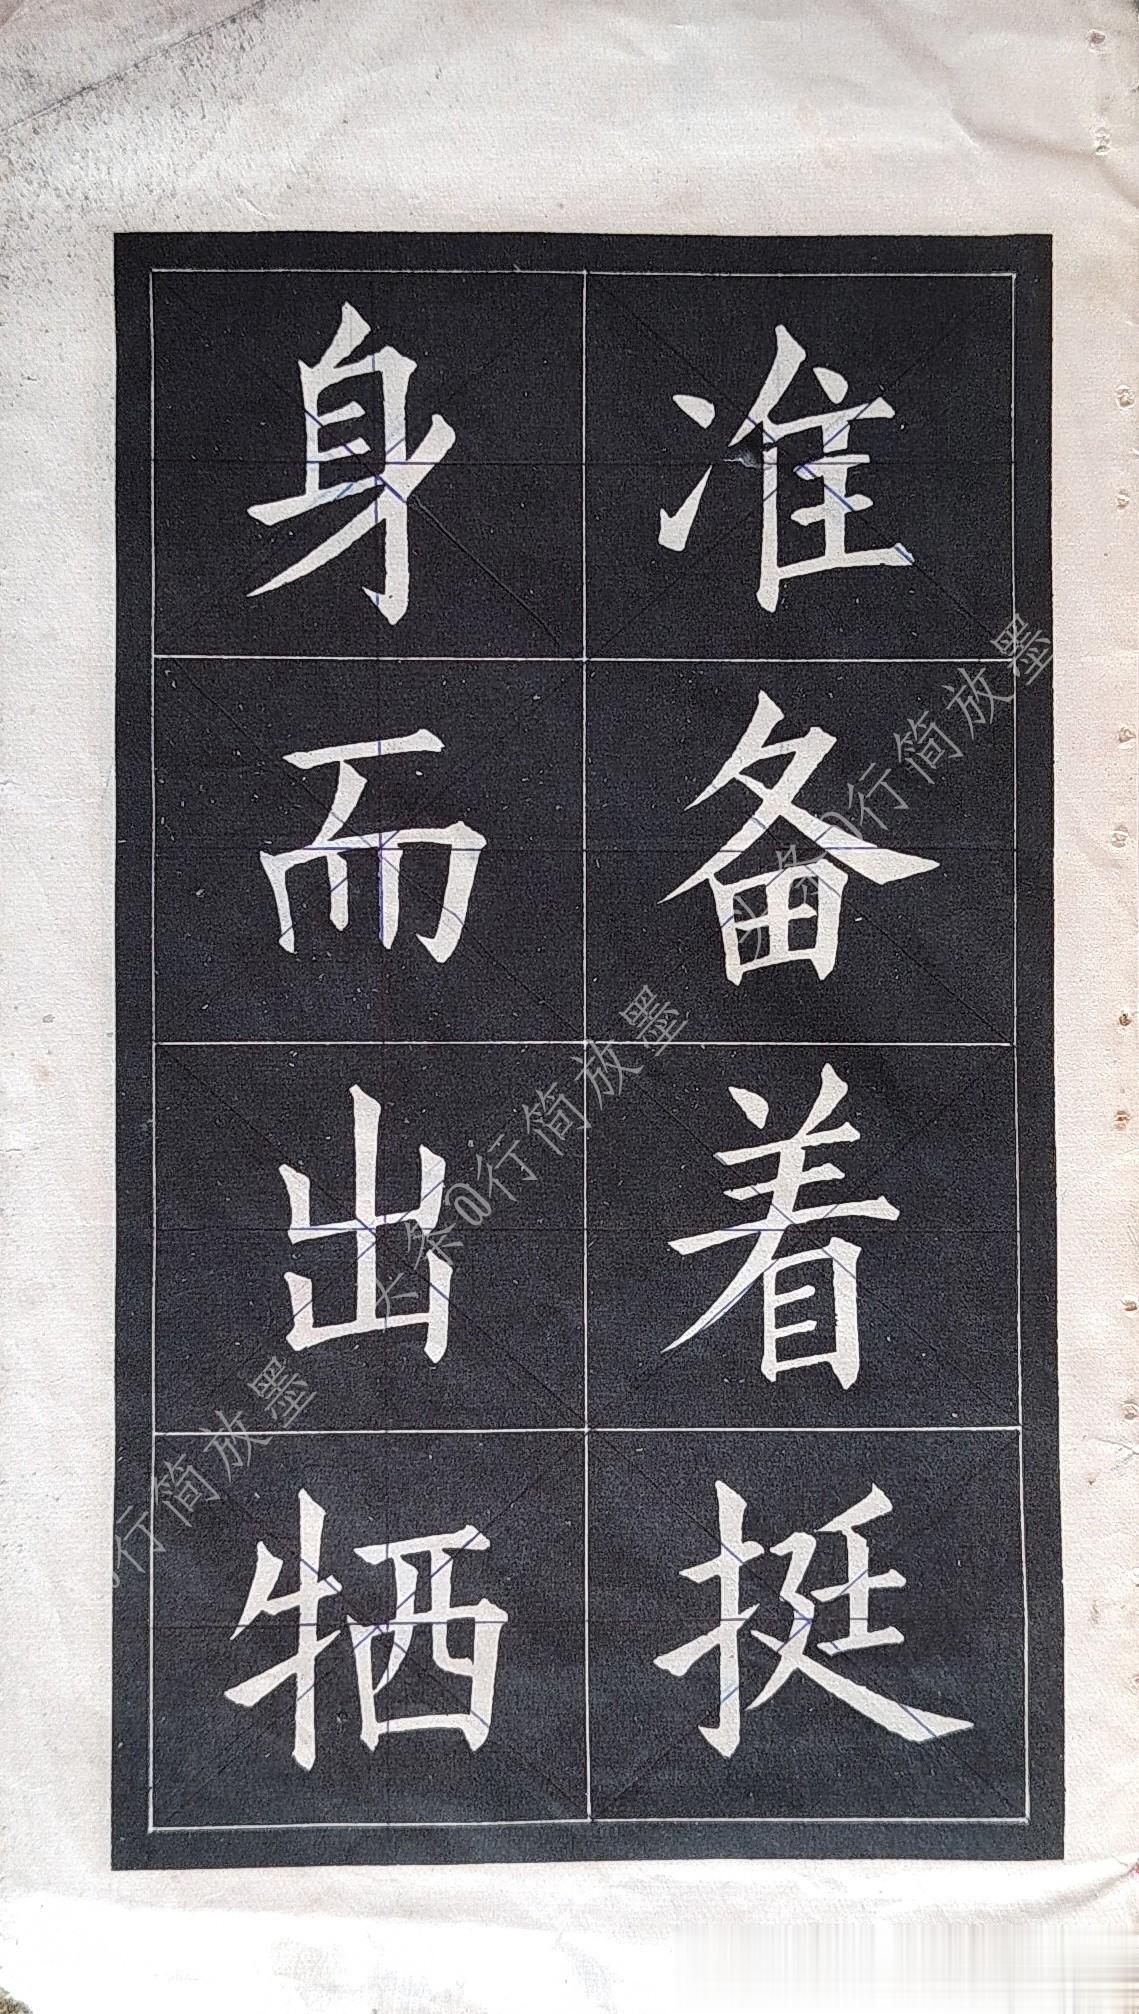 准备着挺
身而出牺
头条@行简放墨
头条@行简放墨
行简放墨